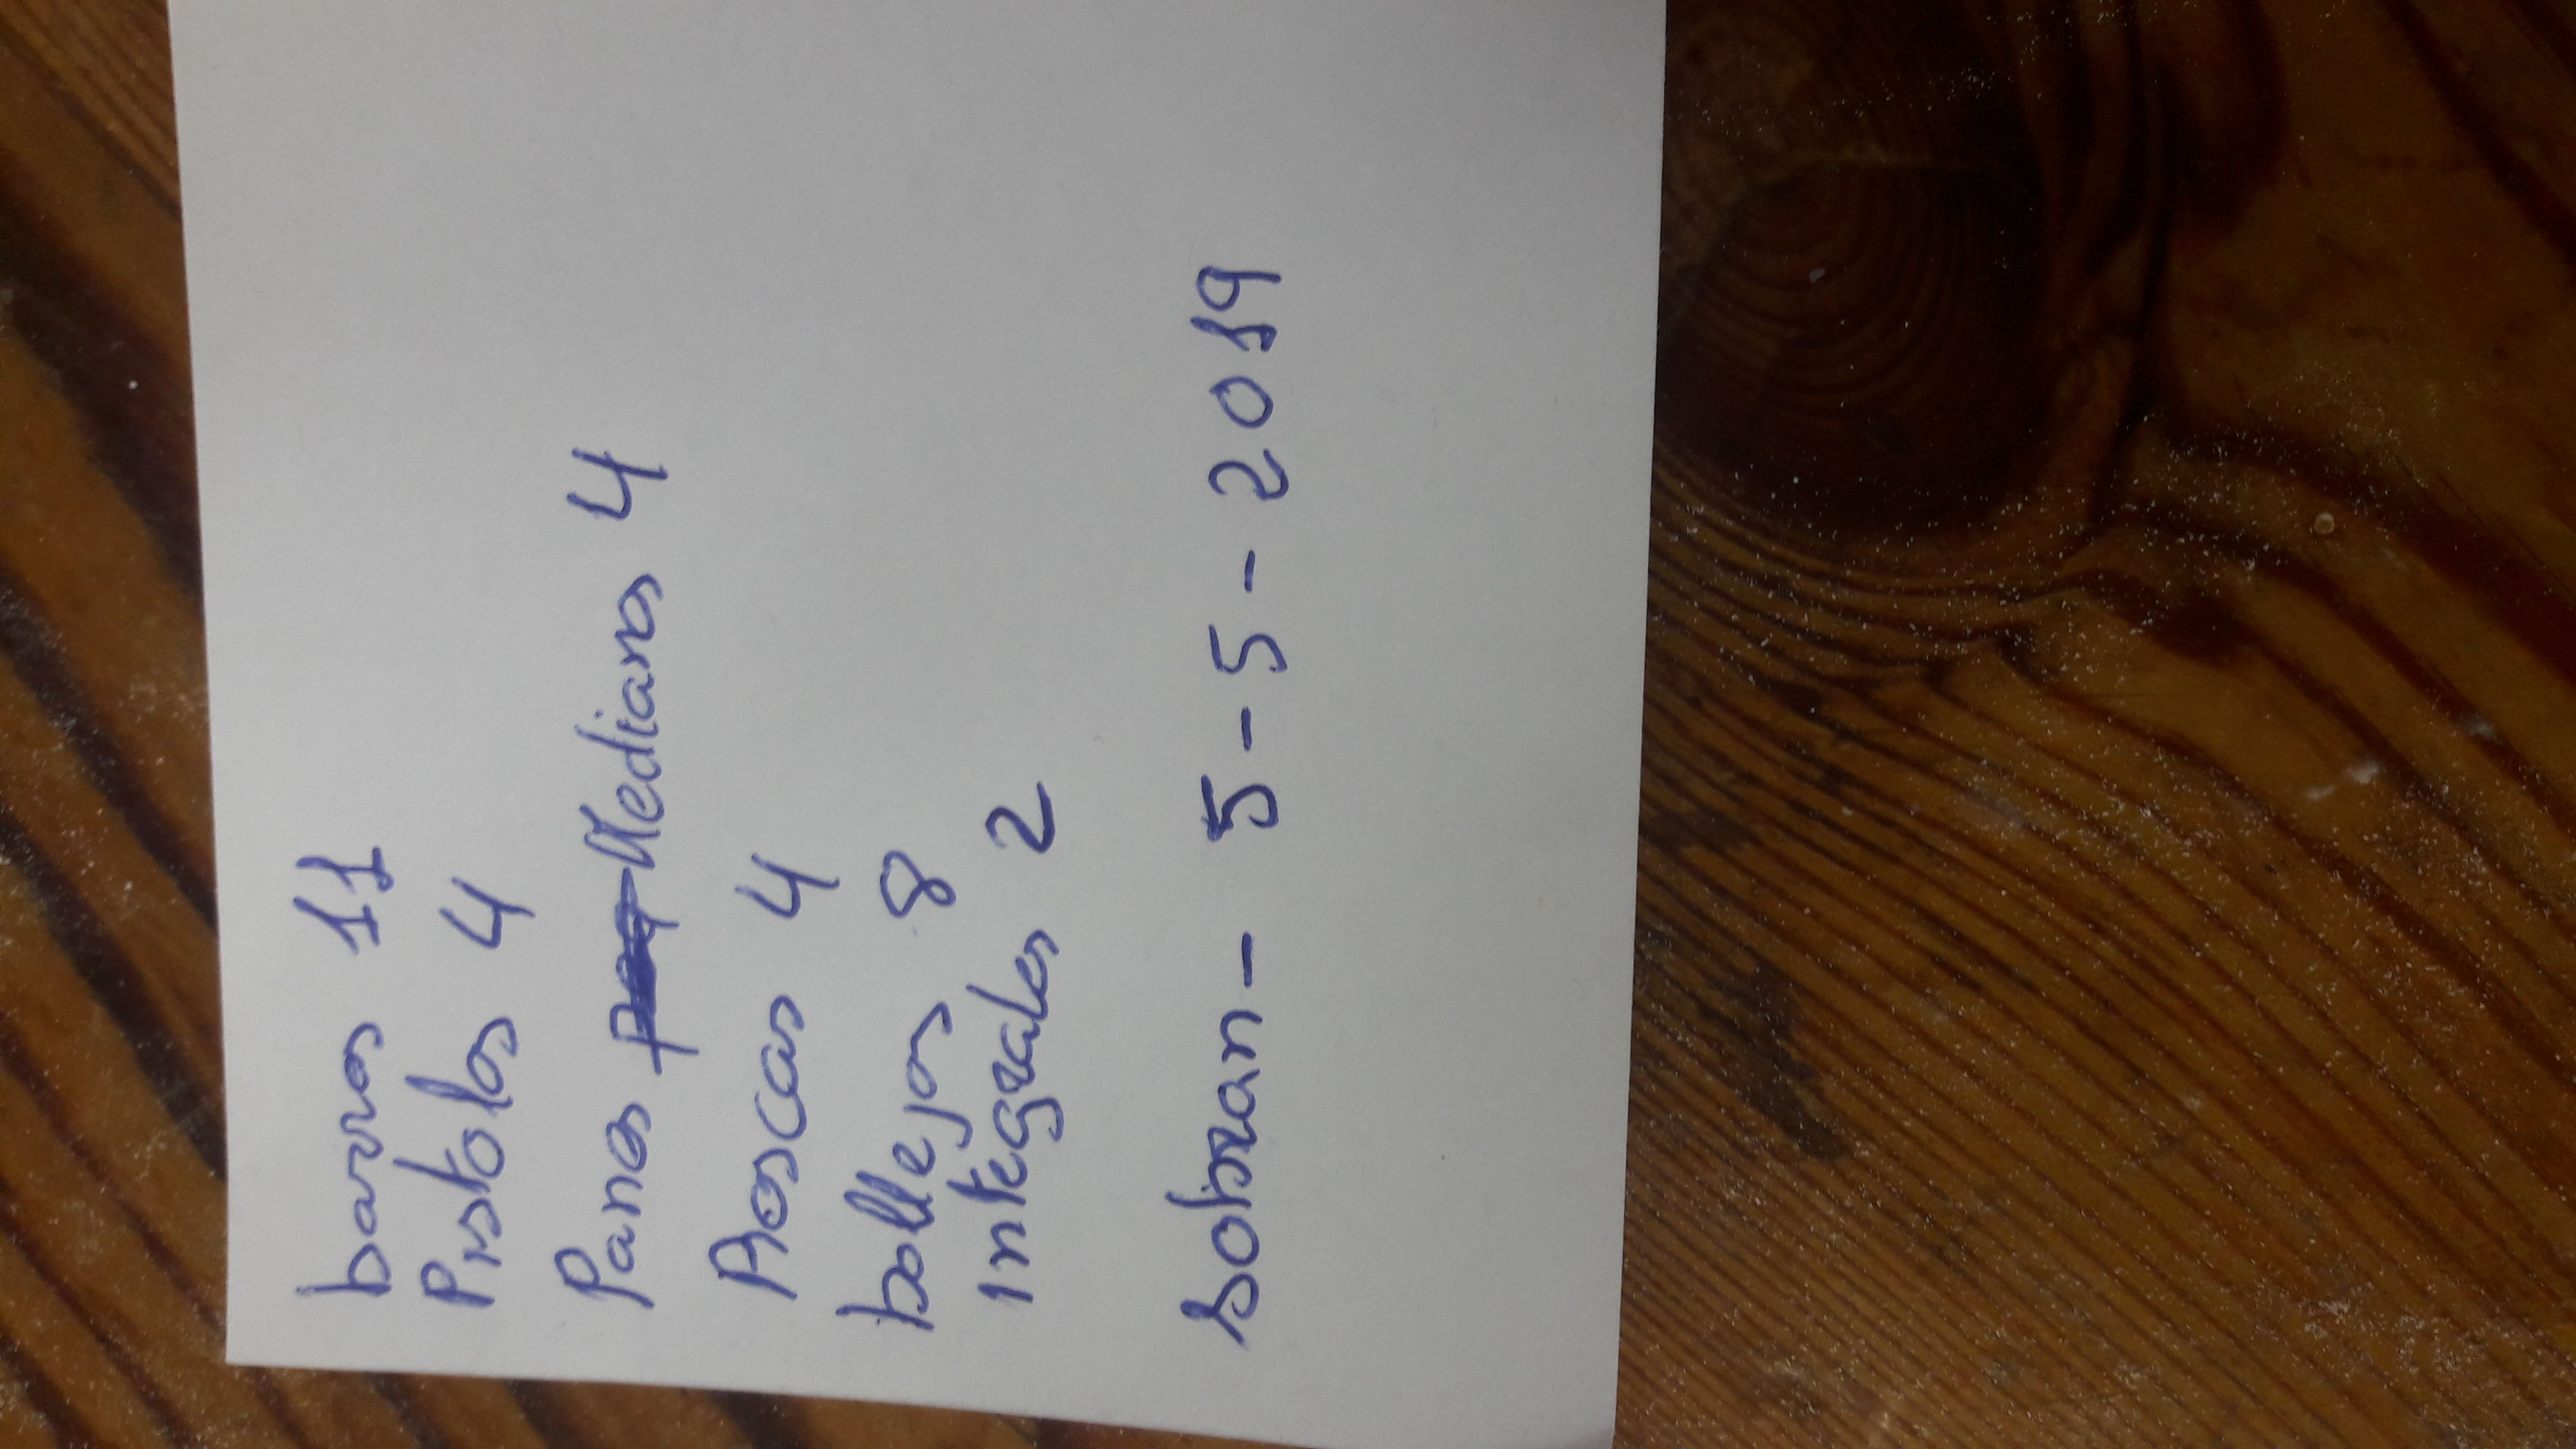 barras 11
Pistolas 4
Panes Medianos 4
Roscas 4
bollejos 8
integrales 2
sobran - 5 - 5 - 2019